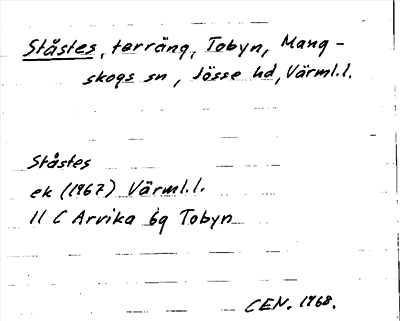 Ståstes, terräng, Tobyn, Mang-
skogs sn, Jösse hd, Värml.l.
Ståstes
ek (1967) Värml.l.
11 C Arvika 6g Tobyn
CEN. 1968.